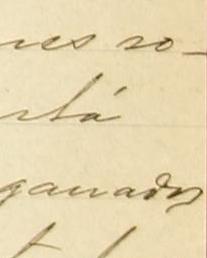 nes so-
stá
ganados